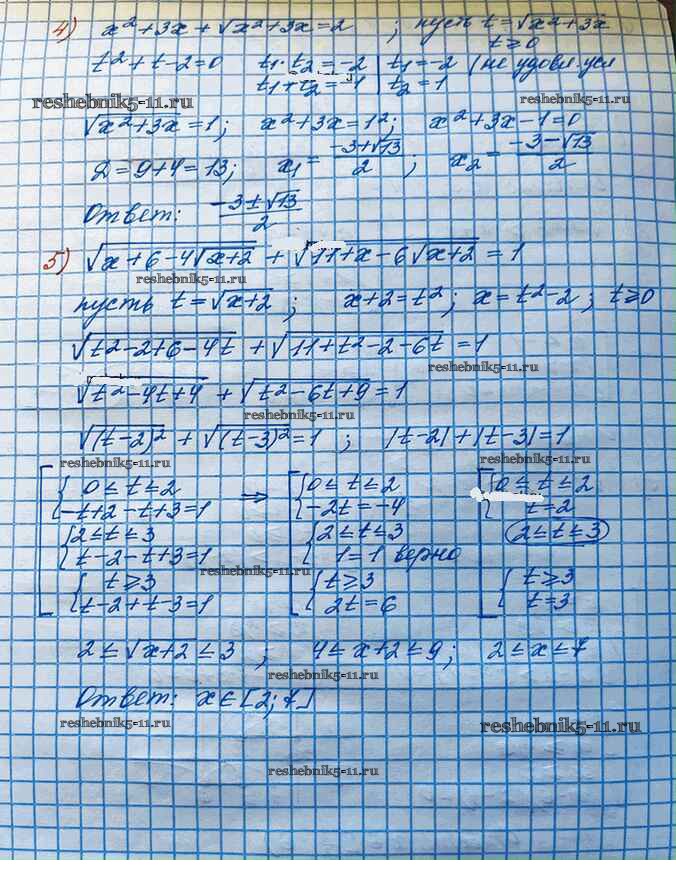 4) x²+3x+√x²+3x=2 ; пусть t=√x²+3x
t≥0
t²+t-2=0 t₁·t₂=-2 | t₁=-2 (не удовл. усл
t₁+t₂=-1 | t₂=1
reshebnik5-11.ru reshebnik5-11.ru
√x²+3x=1; x²+3x=1²; x²+3x-1=0
D=9+4=13; x₁=(-3+√13)/2 ; x₂=(-3-√13)/2
Ответ: (-3±√13)/2
5) √x+6-4√x+2 + √11+x-6√x+2 = 1
reshebnik5-11.ru
пусть t=√x+2 ; x+2=t²; x=t²-2; t≥0
√t²-2+6-4t + √11+t²-2-6t =1
reshebnik5-11.ru
√t²-4t+4 + √t²-6t+9=1
reshebnik5-11.ru
√(t-2)² + √(t-3)²=1 ; |t-2|+|t-3|=1
[ { 0≤t≤2 ⇒ [ { 0≤t≤2 [ { 0≤t≤2
-t+2-t+3=1 -2t=-4 t=2
{ 2≤t≤3 { 2≤t≤3 2≤t≤3
t-2-t+3=1 1=1 верно
reshebnik5-11.ru
{ t≥3 { t≥3 { t≥3
t-2+t-3=1 2t=6 t=3
2≤√x+2≤3 ; 4≤x+2≤9; 2≤x≤7
reshebnik5-11.ru
Ответ: x∈[2;7]
reshebnik5-11.ru reshebnik5-11.ru
reshebnik5-11.ru